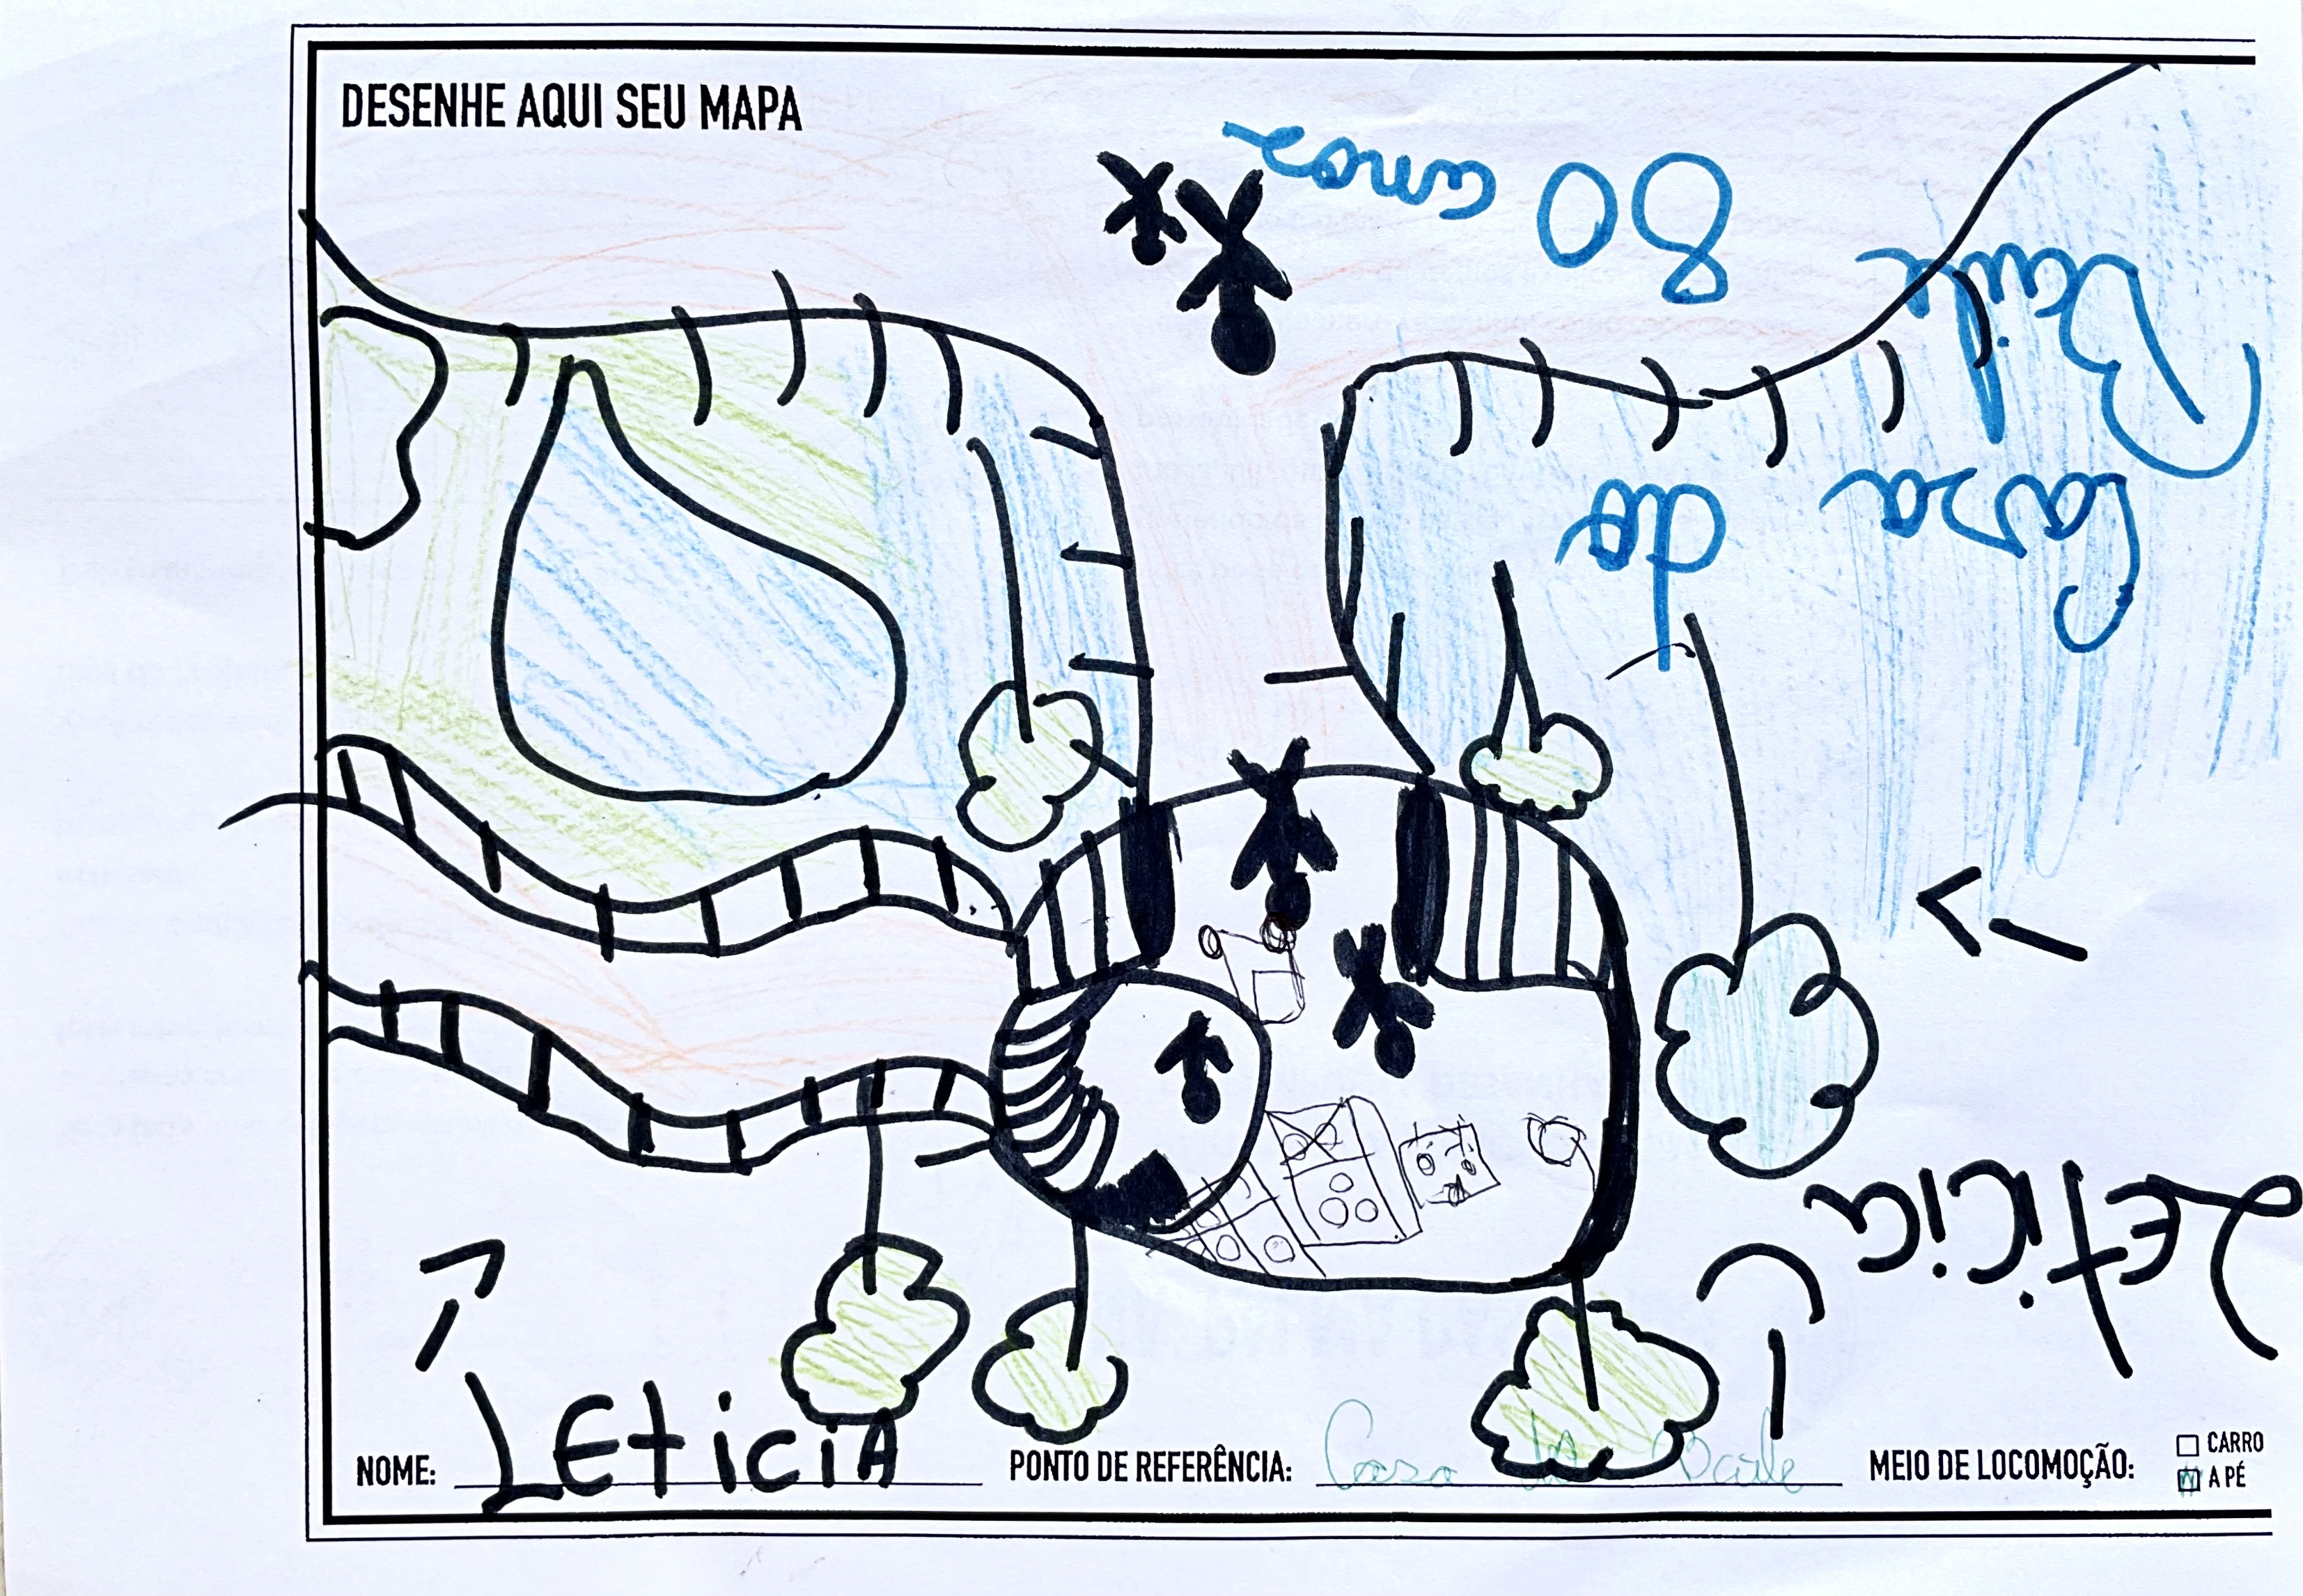 DESENHE AQUI SEU MAPA
Casa de
Baile
80 anos
Leticia
NOME: LEticiA PONTO DE REFERÊNCIA: Casa do Baile MEIO DE LOCOMOÇÃO:
CARRO
A PÉ